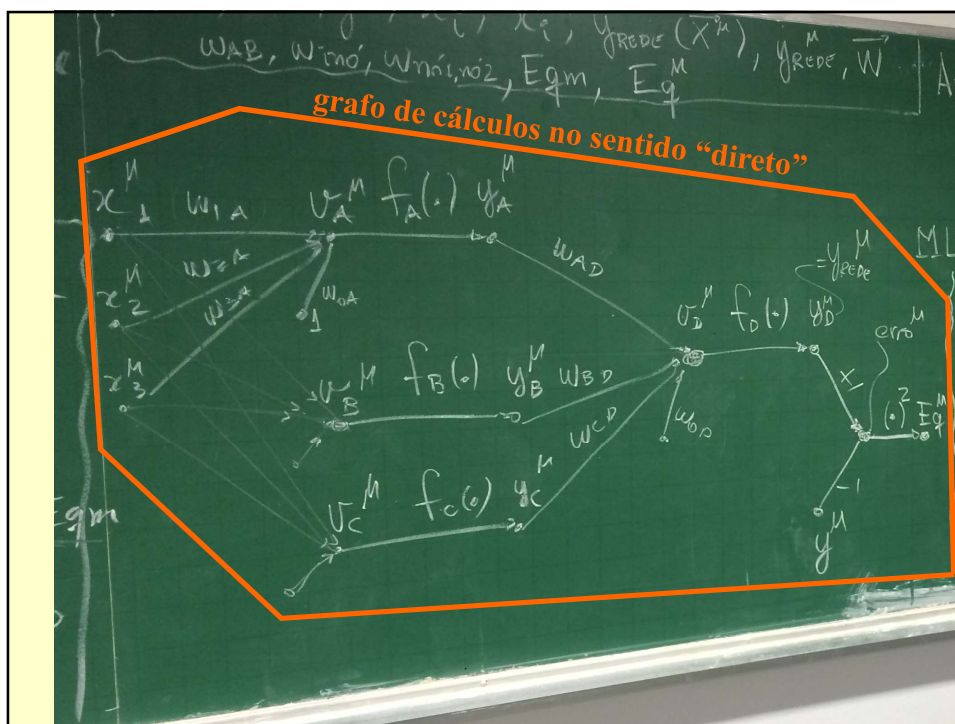 x_i, y_REDE(X^μ), y_REDE^μ, W
w_AB, w_inó, w_nó1,nó2, Eqm, Eq^μ
grafo de cálculos no sentido “direto”
x_1^μ w_1A v_A^μ f_A(.) y_A^μ
w_2A
w_3A
w_0A
1
x_2^μ
x_3^μ
w_AD
v_B^μ f_B(.) y_B^μ w_BD
w_CD
v_C^μ f_C(.) y_C^μ
v_D^μ f_D(.) y_D^μ
=y_REDE^μ
w_0D
erro^μ
x1
(.)^2 Eq^μ
-1
y^μ
Eqm
ML